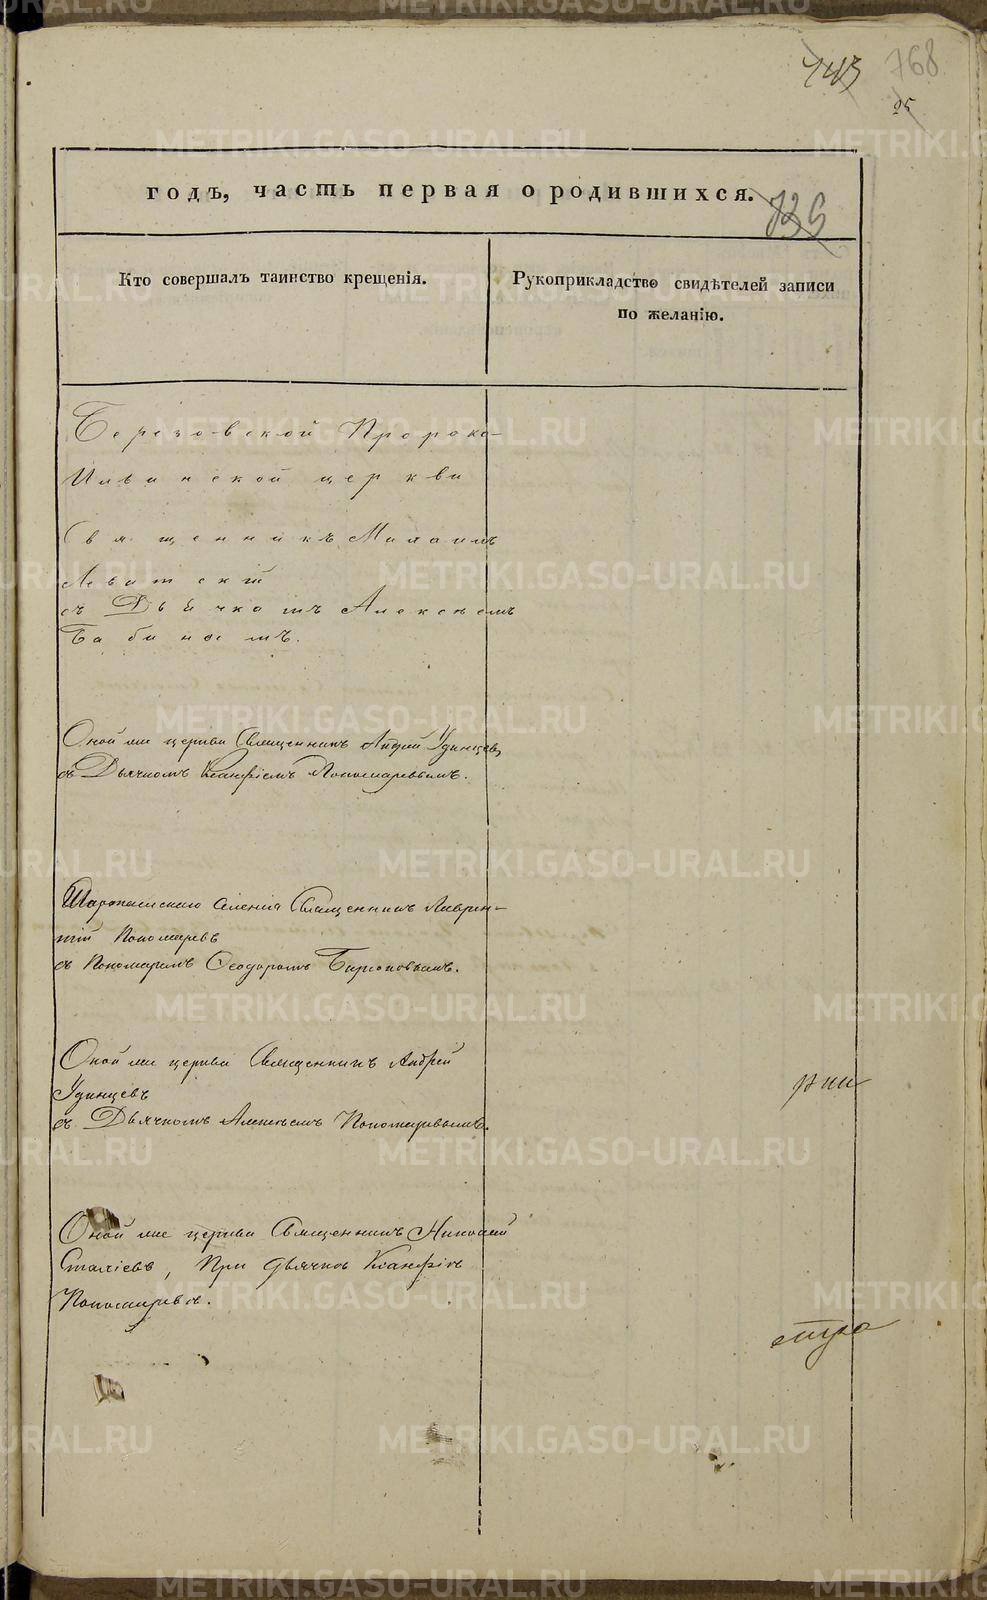 768
годъ, часть первая о родившихся.
Кто совершалъ таинство крещенія.
Рукоприкладство свидѣтелей записи
по желанію.
Березовской Пророко-
Ильинской церкви
Священникъ Михаилъ
съ Дьячкомъ Алексѣемъ
Бабиновымъ.
Оной же церкви Священникъ Андрей Удинцевъ
съ Дьячкомъ Ксанфіемъ Пономаревымъ.
Священникъ Лаврен-
тій Пономаревъ
съ Пономаремъ Ѳеодоромъ
Оной же церкви Священникъ Андрей
Удинцевъ
съ Дьячкомъ Алексѣемъ Пономаревымъ.
Оной же церкви Священникъ Николай
при дьячкѣ Ксанфіѣ
Пономаревѣ.
METRIKI.GASO-URAL.RU